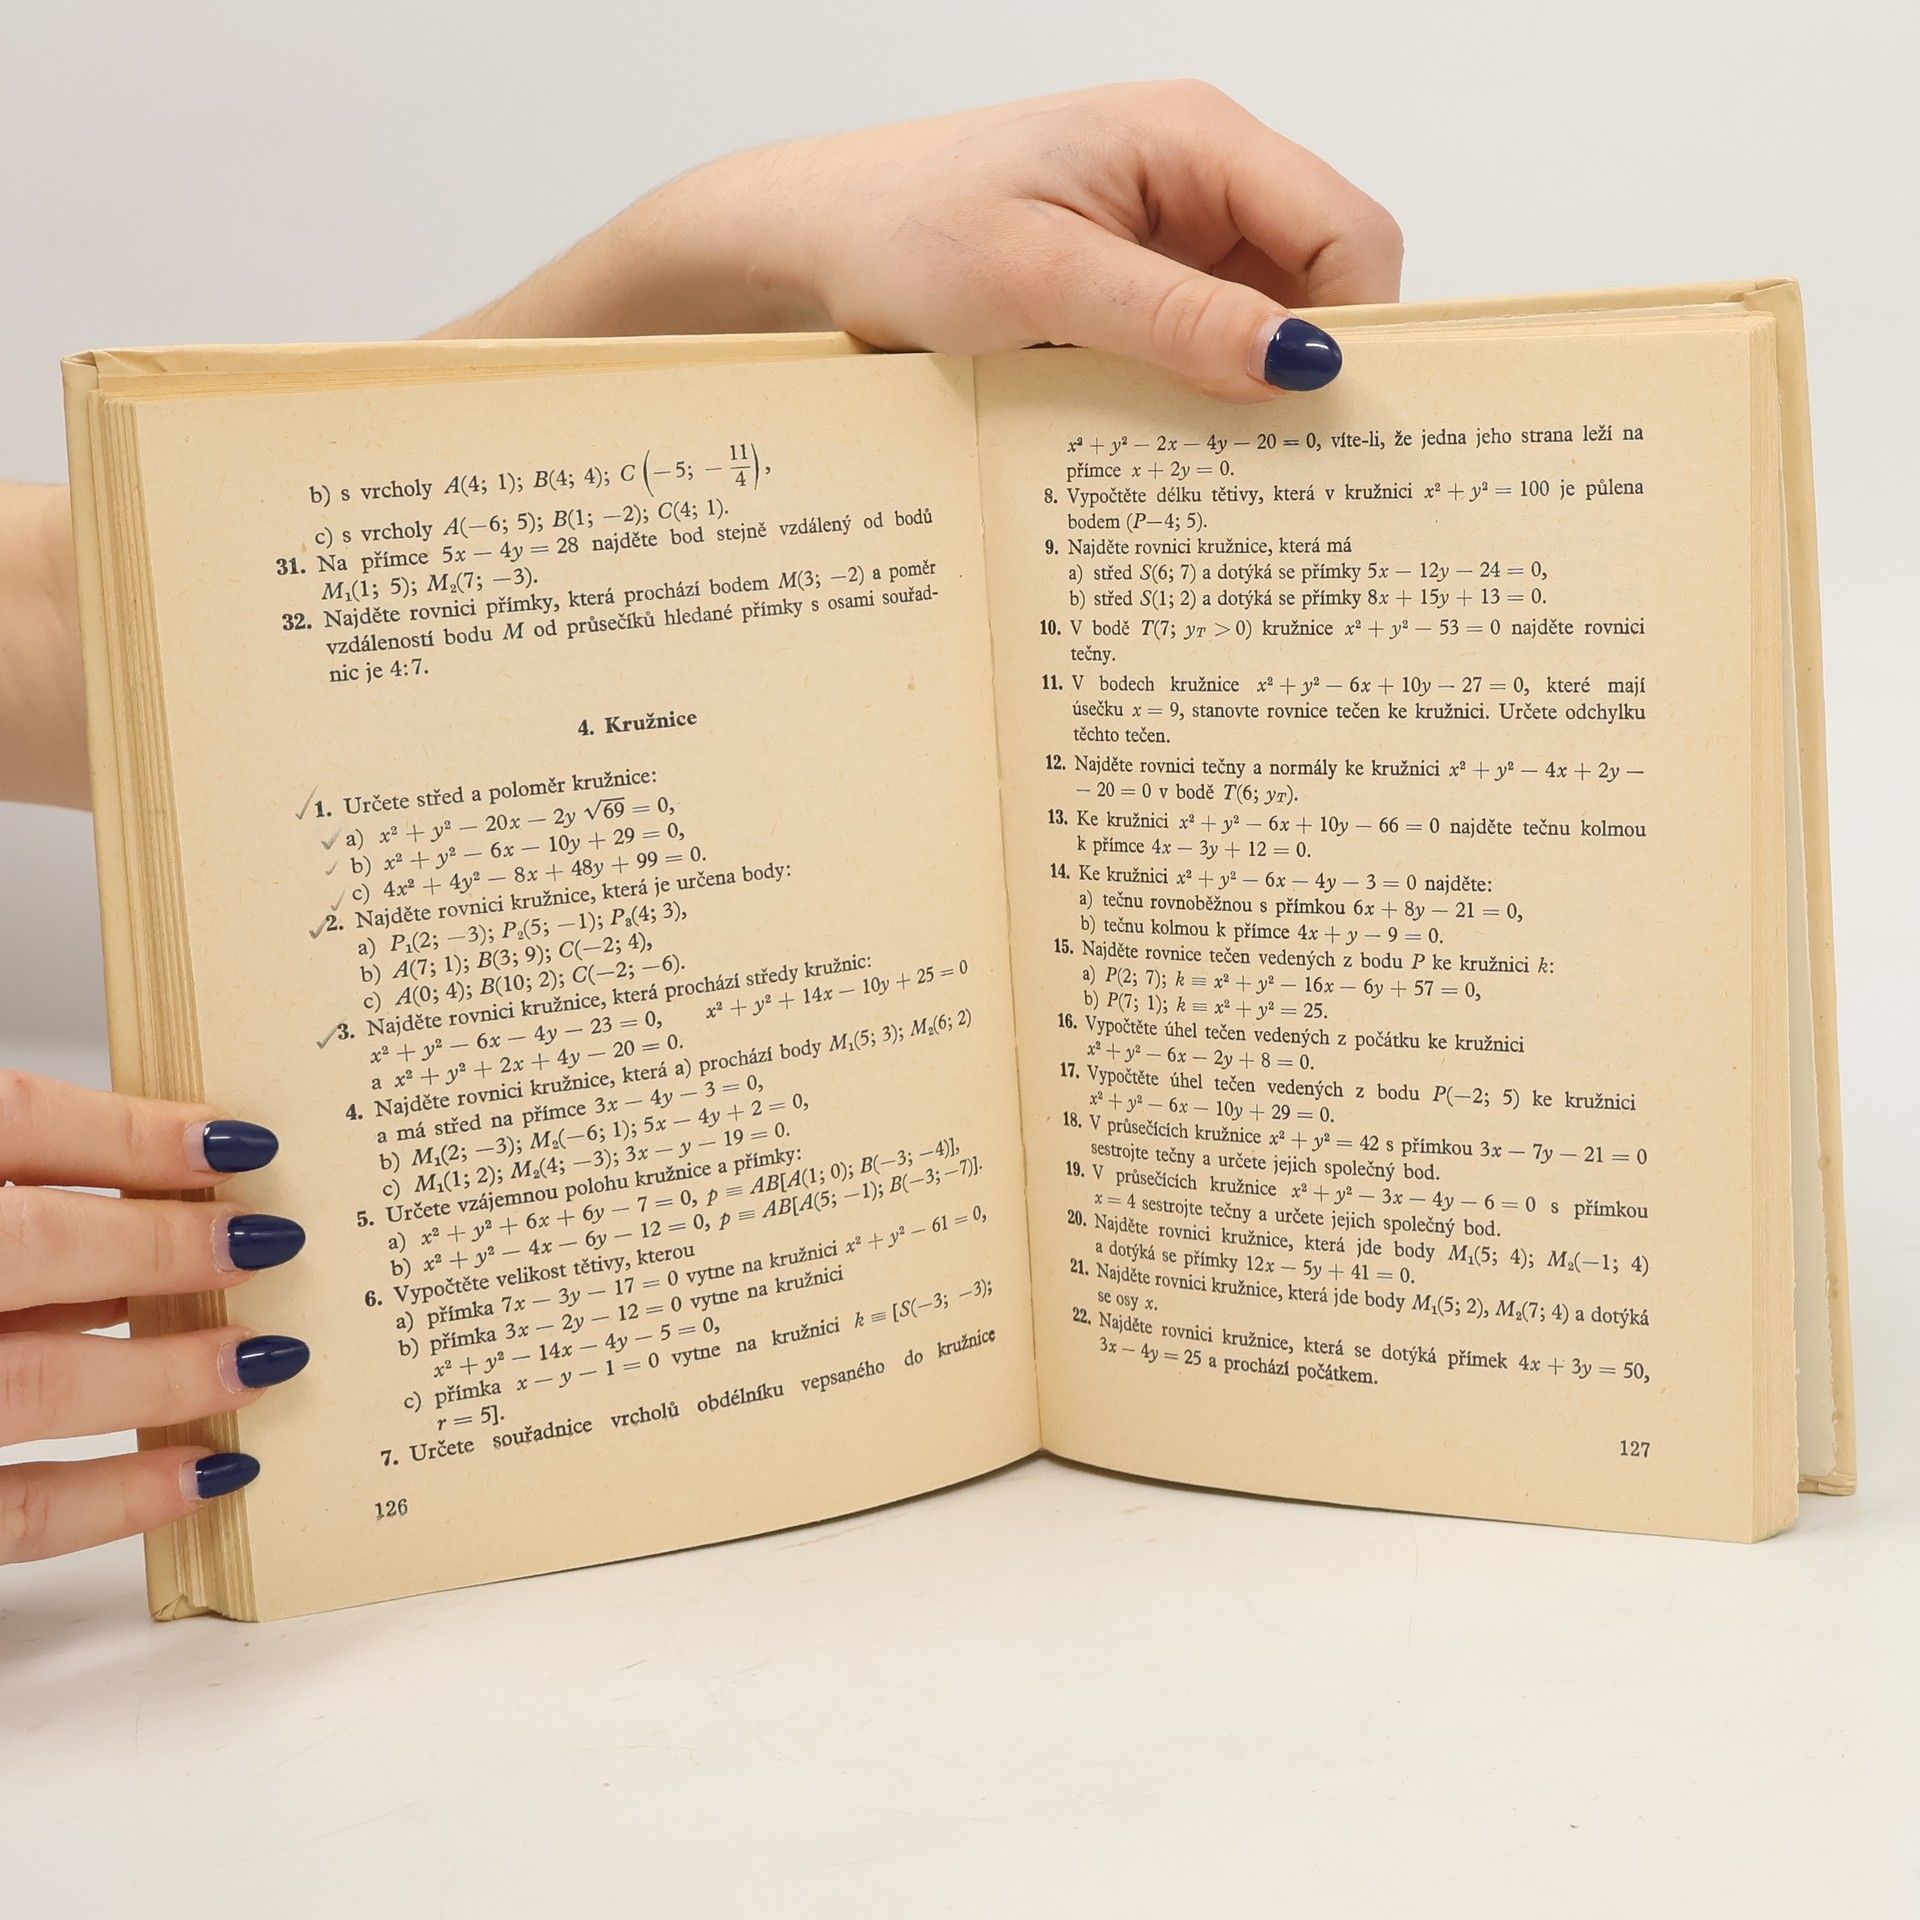 b) s vrcholy A(4; 1); B(4; 4); C(−5; −11/4),
c) s vrcholy A(−6; 5); B(1; −2); C(4; 1).
31. Na přímce 5x − 4y = 28 najděte bod stejně vzdálený od bodů
M₁(1; 5); M₂(7; −3).
32. Najděte rovnici přímky, která prochází bodem M(3; −2) a poměr
vzdáleností bodu M od průsečíků hledané přímky s osami souřad-
nic je 4:7.
4. Kružnice
1. Určete střed a poloměr kružnice:
a) x² + y² − 20x − 2y √69 = 0,
b) x² + y² − 6x − 10y + 29 = 0,
c) 4x² + 4y² − 8x + 48y + 99 = 0.
2. Najděte rovnici kružnice, která je určena body:
a) P₁(2; −3); P₂(5; −1); P₃(4; 3),
b) A(7; 1); B(3; 9); C(−2; 4),
c) A(0; 4); B(10; 2); C(−2; −6).
3. Najděte rovnici kružnice, která prochází středy kružnic:
x² + y² − 6x − 4y − 23 = 0, x² + y² + 14x − 10y + 25 = 0
a x² + y² + 2x + 4y − 20 = 0.
4. Najděte rovnici kružnice, která a) prochází body M₁(5; 3); M₂(6; 2)
a má střed na přímce 3x − 4y − 3 = 0,
b) M₁(2; −3); M₂(−6; 1); 5x − 4y + 2 = 0,
c) M₁(1; 2); M₂(4; −3); 3x − y − 19 = 0.
5. Určete vzájemnou polohu kružnice a přímky:
a) x² + y² + 6x + 6y − 7 = 0, p ≡ AB[A(1; 0); B(−3; −4)],
b) x² + y² − 4x − 6y − 12 = 0, p ≡ AB[A(5; −1); B(−3; −7)].
6. Vypočtěte velikost tětivy, kterou
a) přímka 7x − 3y − 17 = 0 vytne na kružnici x² + y² − 61 = 0,
b) přímka 3x − 2y − 12 = 0 vytne na kružnici
x² + y² − 14x − 4y − 5 = 0,
c) přímka x − y − 1 = 0 vytne na kružnici k ≡ [S(−3; −3);
r = 5].
7. Určete souřadnice vrcholů obdélníku vepsaného do kružnice
126
x² + y² − 2x − 4y − 20 = 0, víte-li, že jedna jeho strana leží na
přímce x + 2y = 0.
8. Vypočtěte délku tětivy, která v kružnici x² + y² = 100 je půlena
bodem (P−4; 5).
9. Najděte rovnici kružnice, která má
a) střed S(6; 7) a dotýká se přímky 5x − 12y − 24 = 0,
b) střed S(1; 2) a dotýká se přímky 8x + 15y + 13 = 0.
10. V bodě T(7; y_T > 0) kružnice x² + y² − 53 = 0 najděte rovnici
tečny.
11. V bodech kružnice x² + y² − 6x + 10y − 27 = 0, které mají
úsečku x = 9, stanovte rovnice tečen ke kružnici. Určete odchylku
těchto tečen.
12. Najděte rovnici tečny a normály ke kružnici x² + y² − 4x + 2y −
− 20 = 0 v bodě T(6; y_T).
13. Ke kružnici x² + y² − 6x + 10y − 66 = 0 najděte tečnu kolmou
k přímce 4x − 3y + 12 = 0.
14. Ke kružnici x² + y² − 6x − 4y − 3 = 0 najděte:
a) tečnu rovnoběžnou s přímkou 6x + 8y − 21 = 0,
b) tečnu kolmou k přímce 4x + y − 9 = 0.
15. Najděte rovnice tečen vedených z bodu P ke kružnici k:
a) P(2; 7); k ≡ x² + y² − 16x − 6y + 57 = 0,
b) P(7; 1); k ≡ x² + y² = 25.
16. Vypočtěte úhel tečen vedených z počátku ke kružnici
x² + y² − 6x − 2y + 8 = 0.
17. Vypočtěte úhel tečen vedených z bodu P(−2; 5) ke kružnici
x² + y² − 6x − 10y + 29 = 0.
18. V průsečících kružnice x² + y² = 42 s přímkou 3x − 7y − 21 = 0
sestrojte tečny a určete jejich společný bod.
19. V průsečících kružnice x² + y² − 3x − 4y − 6 = 0 s přímkou
x = 4 sestrojte tečny a určete jejich společný bod.
20. Najděte rovnici kružnice, která jde body M₁(5; 4); M₂(−1; 4)
a dotýká se přímky 12x − 5y + 41 = 0.
21. Najděte rovnici kružnice, která jde body M₁(5; 2), M₂(7; 4) a dotýká
se osy x.
22. Najděte rovnici kružnice, která se dotýká přímek 4x + 3y = 50,
3x − 4y = 25 a prochází počátkem.
127